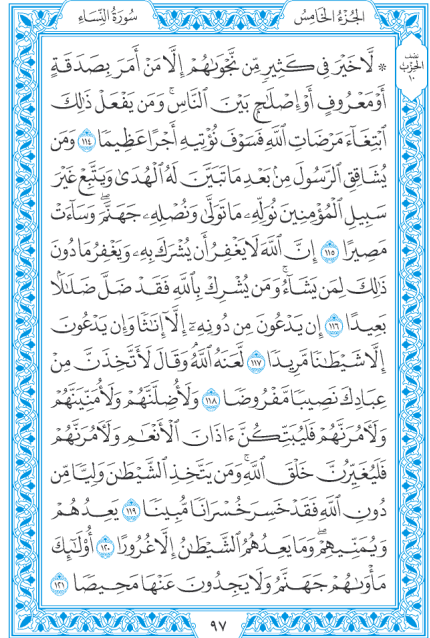 الجُزْءُ الخَامِسُ
سُورَةُ النِّسَاءِ
نصف
الحِزْب
١٠
۞ لَّا خَيْرَ فِي كَثِيرٍ مِّن نَّجْوَىٰهُمْ إِلَّا مَنْ أَمَرَ بِصَدَقَةٍ
أَوْ مَعْرُوفٍ أَوْ إِصْلَٰحٍۭ بَيْنَ النَّاسِۚ وَمَن يَفْعَلْ ذَٰلِكَ
ابْتِغَآءَ مَرْضَاتِ اللَّهِ فَسَوْفَ نُؤْتِيهِ أَجْرًا عَظِيمًا ١١٤ وَمَن
يُشَاقِقِ الرَّسُولَ مِنۢ بَعْدِ مَا تَبَيَّنَ لَهُ الْهُدَىٰ وَيَتَّبِعْ غَيْرَ
سَبِيلِ الْمُؤْمِنِينَ نُوَلِّهِۦ مَا تَوَلَّىٰ وَنُصْلِهِۦ جَهَنَّمَۖ وَسَآءَتْ
مَصِيرًا ١١٥ إِنَّ اللَّهَ لَا يَغْفِرُ أَن يُشْرَكَ بِهِۦ وَيَغْفِرُ مَا دُونَ
ذَٰلِكَ لِمَن يَشَآءُۚ وَمَن يُشْرِكْ بِاللَّهِ فَقَدْ ضَلَّ ضَلَٰلًۢا
بَعِيدًا ١١٦ إِن يَدْعُونَ مِن دُونِهِۦٓ إِلَّآ إِنَٰثًا وَإِن يَدْعُونَ
إِلَّا شَيْطَٰنًا مَّرِيدًا ١١٧ لَّعَنَهُ اللَّهُۘ وَقَالَ لَأَتَّخِذَنَّ مِنْ
عِبَادِكَ نَصِيبًا مَّفْرُوضًا ١١٨ وَلَأُضِلَّنَّهُمْ وَلَأُمَنِّيَنَّهُمْ
وَلَءَامُرَنَّهُمْ فَلَيُبَتِّكُنَّ ءَاذَانَ الْأَنْعَٰمِ وَلَءَامُرَنَّهُمْ
فَلَيُغَيِّرُنَّ خَلْقَ اللَّهِۚ وَمَن يَتَّخِذِ الشَّيْطَٰنَ وَلِيًّا مِّن
دُونِ اللَّهِ فَقَدْ خَسِرَ خُسْرَانًا مُّبِينًا ١١٩ يَعِدُهُمْ
وَيُمَنِّيهِمْۖ وَمَا يَعِدُهُمُ الشَّيْطَٰنُ إِلَّا غُرُورًا ١٢٠ أُو۟لَٰٓئِكَ
مَأْوَىٰهُمْ جَهَنَّمُ وَلَا يَجِدُونَ عَنْهَا مَحِيصًا ١٢١
٩٧